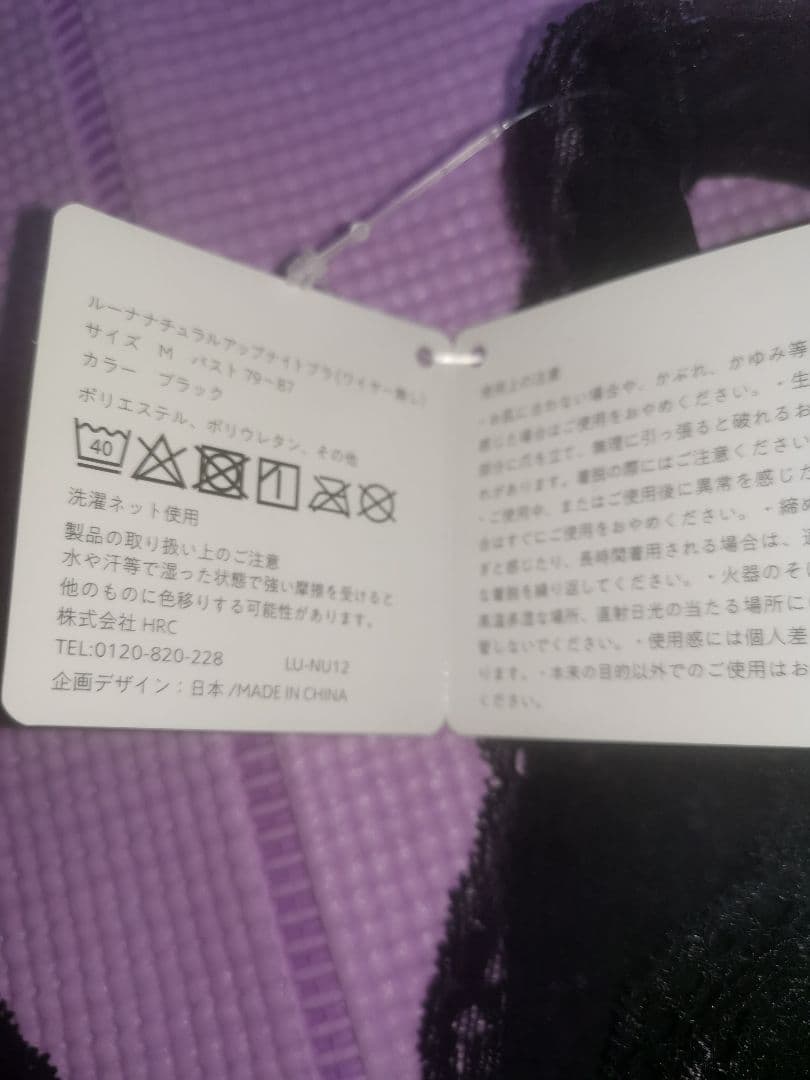 ルーナナチュラルアップナイトブラ(ワイヤー無し)
サイズ M バスト79~87
カラー ブラック
ポリエステル、ポリウレタン、その他
40
洗濯ネット使用
製品の取り扱い上のご注意
水や汗等で湿った状態で強い摩擦を受けると
他のものに色移りする可能性があります。
株式会社 HRC
TEL:0120-820-228 LU-NU12
企画デザイン:日本 /MADE IN CHINA
使用上の注意
・お肌に合わない場合や、かぶれ、かゆみ等
感じた場合はご使用をおやめください。・生
部分に爪を立て、無理に引っ張ると破れるお
れがあります。着脱の際にはご注意ください
・ご使用中、またはご使用後に異常を感じた
合はすぐにご使用をおやめください。・締め
ぎと感じたり、長時間着用される場合は、適
な着脱を繰り返してください。・火器のそば
高温多湿な場所、直射日光の当たる場所に
管しないでください。・使用感には個人差
ります。・本来の目的以外でのご使用はお
ください。